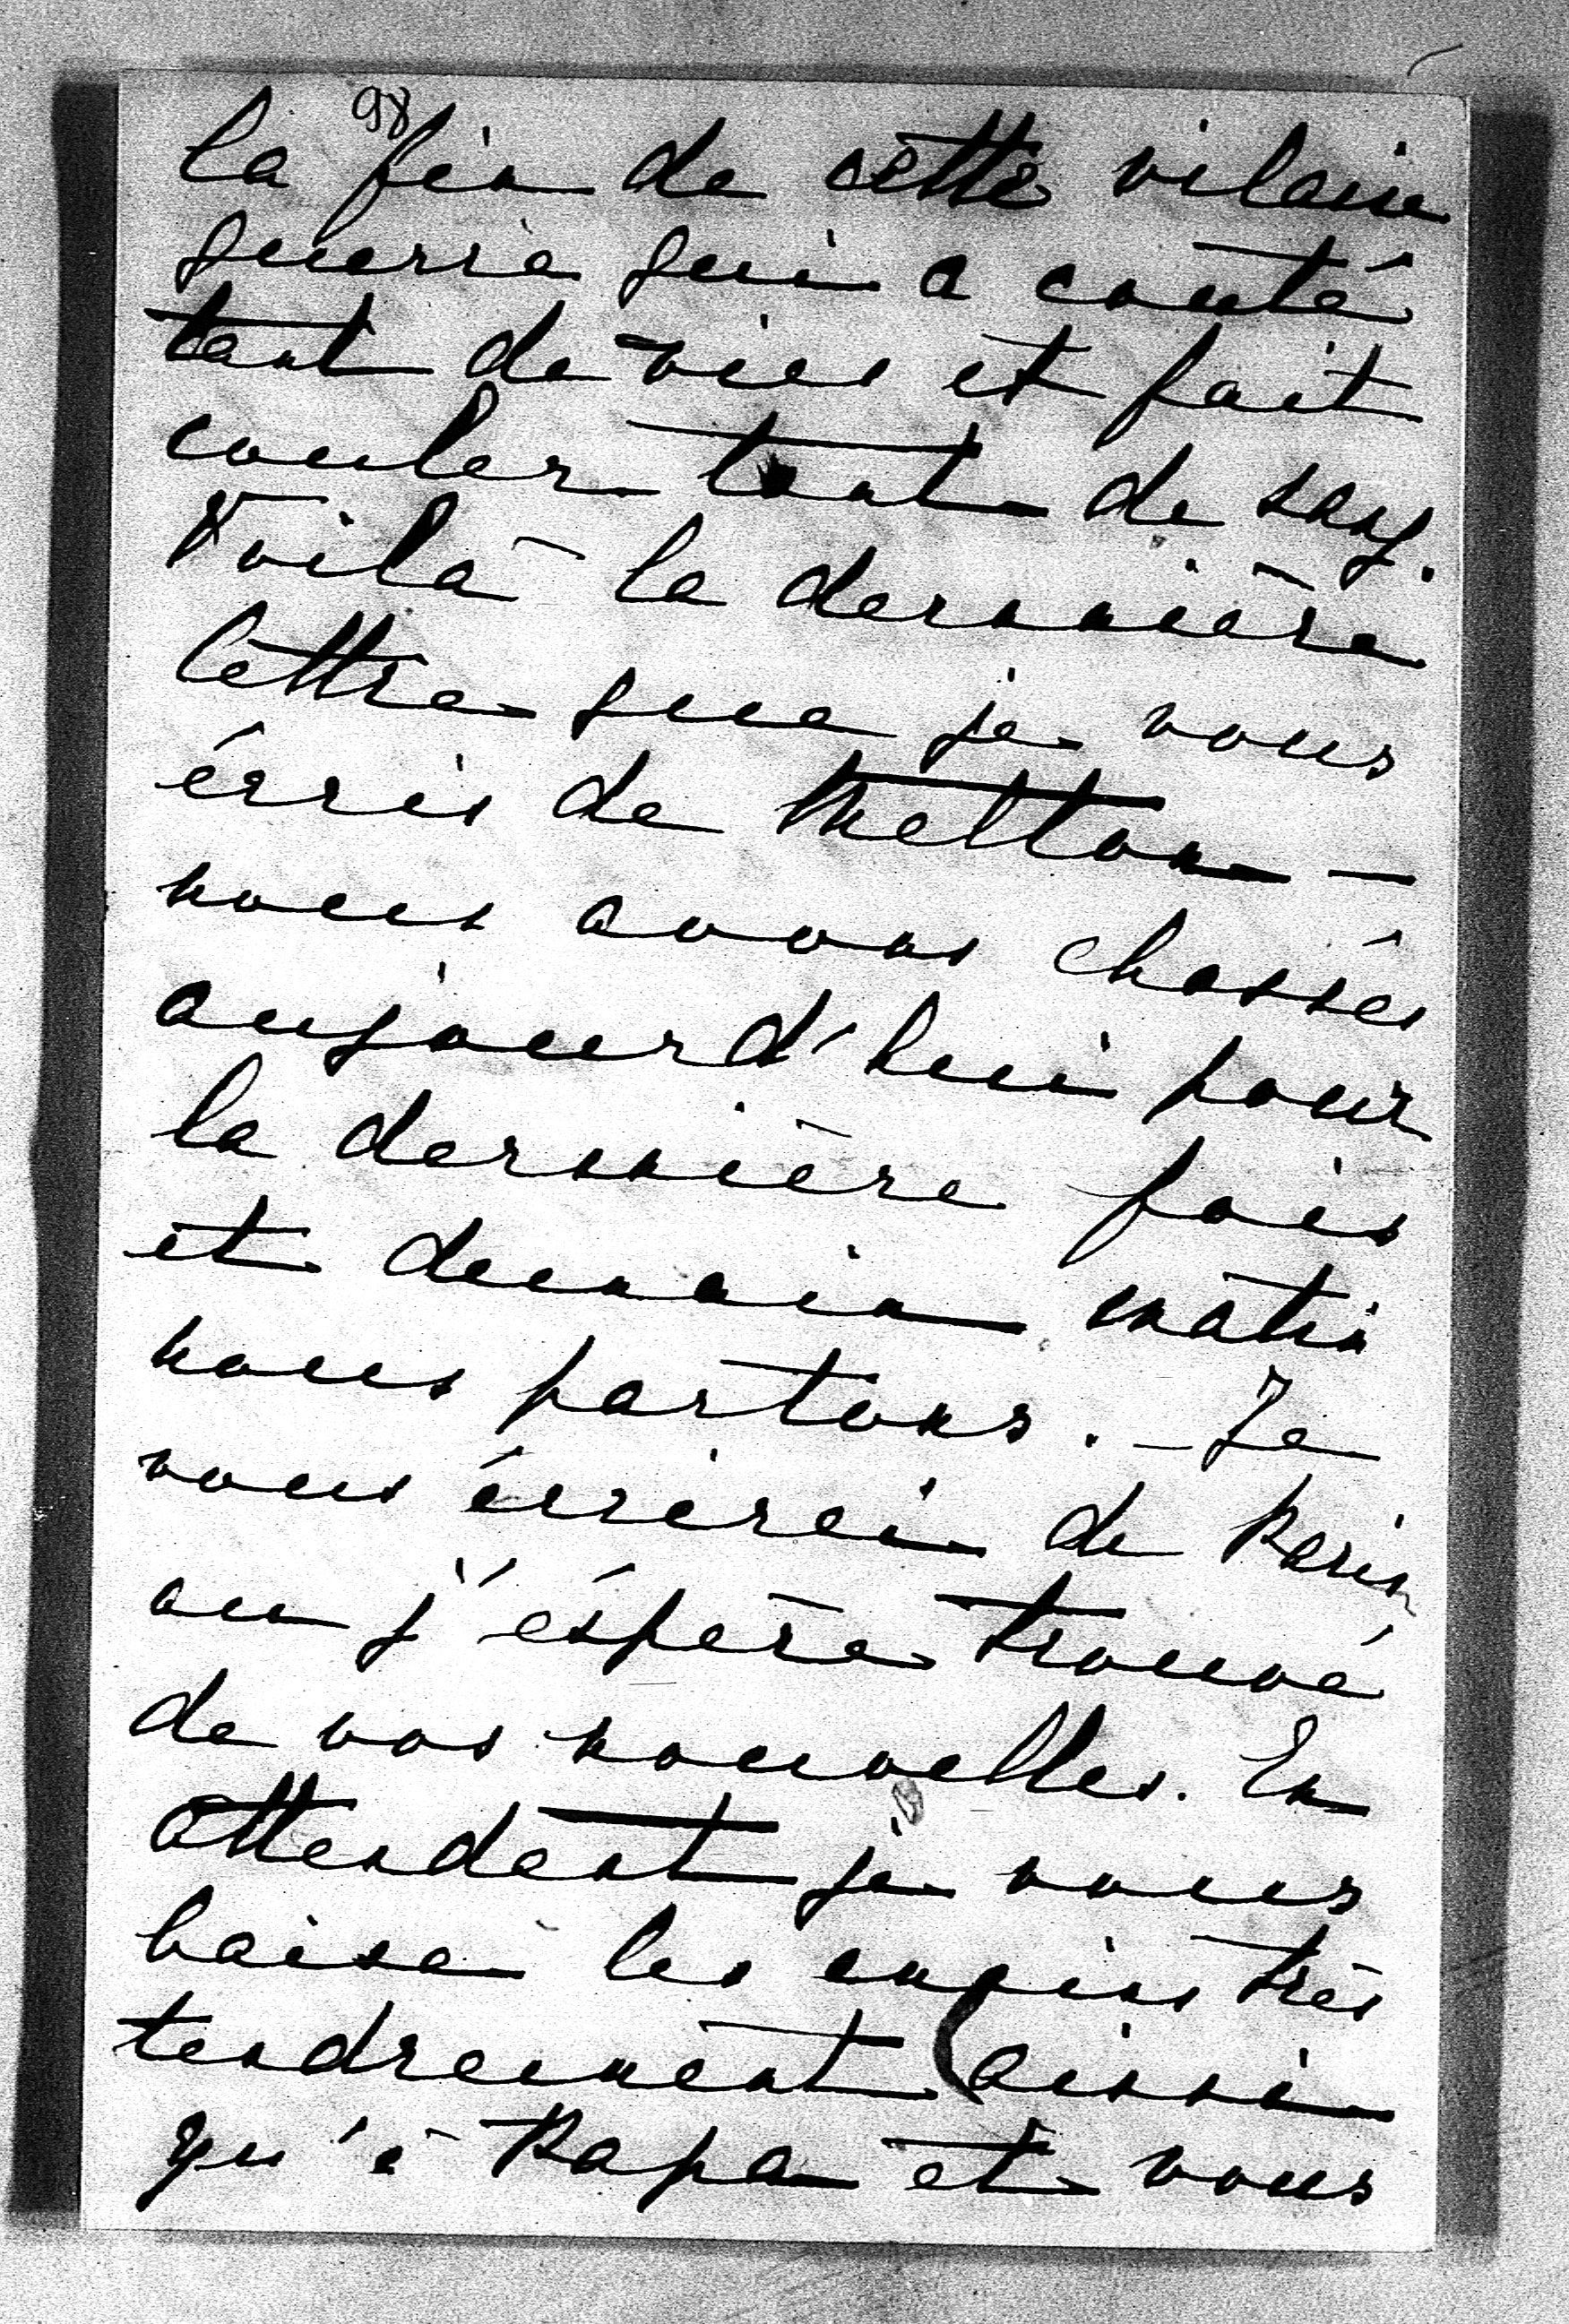 98
la fin de cette vilaine
guerre qui a couté
tant de vies et fait
couler tant de sang.
Voilà la dernière
lettre que je vous
écris de Melton —
nous avons chassés
aujourd'hui pour
la dernière fois
et demain matin
nous partons. — Je
vous écrirai de Paris
ou j'éspère trouvé
de vos nouvelles. En
attendant je vous
baise les mains très
tendrement ainsi
qu'à Papa et vous